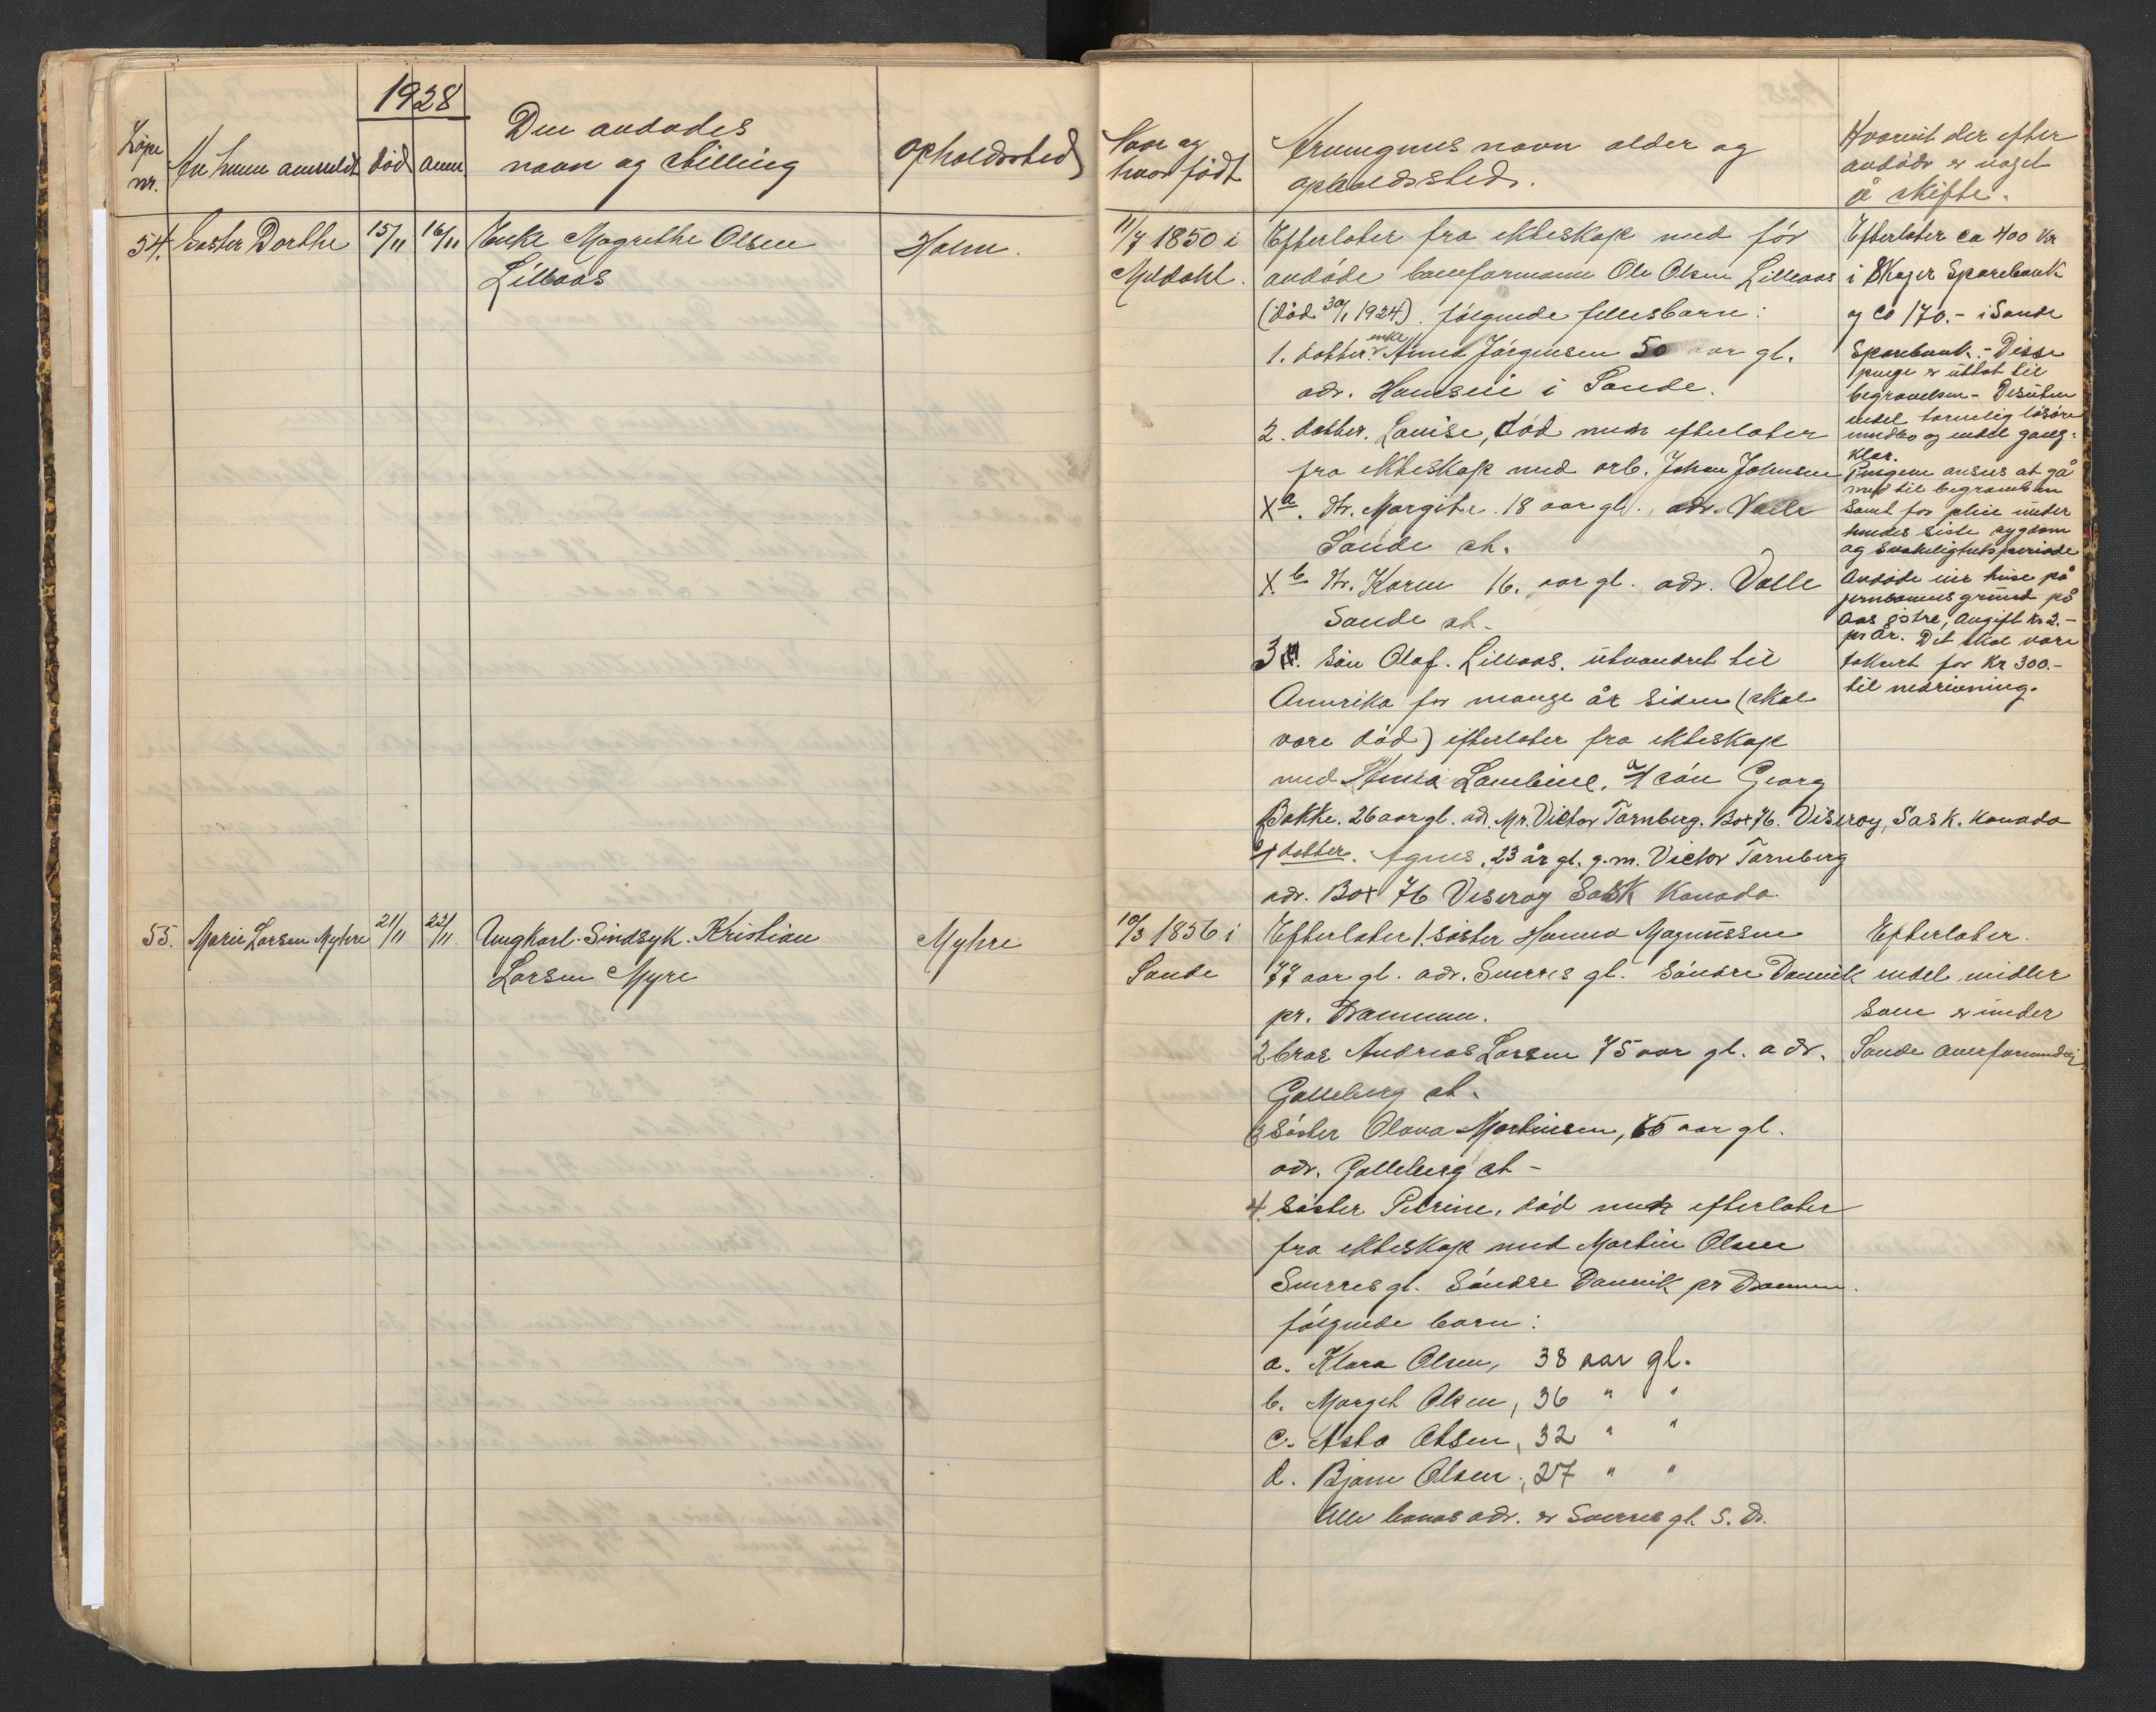 1928
Løpe nr.
Av hvem anmeldt
død
anm.
Den avdødes
navn og stilling
opholdssted
Naar og
hvor født
Arvingenes navn alder og
opholdssteds.
Hvorvit der efter
avdøde er noget
å skifte.
54. Søster Dorthe 15/11 16/11 Enke Magrethe Olsen Holm.
Lilleaas
11/7 1850 i
Meldahl.
Efterlater fra ekteskap med før
avdøde baneformann Ole Olsen Lilleaas
(død 30/1 1924). følgende fellesbarn:
1. datter enke Anna Jørgensen 50 aar gl.
adr. Hamsen i Sande.
2. datter. Lovise, død men efterlater
fra ekteskap med arb. Johan Johnsen
X a. dtr. Margithe. 18 aar gl. adr. Valle
Sande st.
X. b dtr. Karen 16. aar gl. adr. Valle
Sande st.
3. Søn Olaf. Lilleaas. utvandret til
Amerika for mange år siden (skal
være død) efterlater fra ekteskap
med Anna Lambine. a/ søn Georg
Bakke. 26 aar gl. ad. Mr. Victor Tarnberg. Box 76. Viseroy, Sask. Kanada
datter. Agnes, 23 år gl. g.m. Victor Tarnberg
adr. Box 76 Viseroy Sask Kanada
Efterlater ca 400 kr
i Skoger Sparebank
og ca 170.- i Sande
Sparebank. - Disse
penge er uttat til
begravelsen - Desuten
endel tarvelig løsøre
innbo og endel gang-
klær.
Pengene ansees at gå
med til begravelsen
samt for pleie under
hendes siste sygdom
og svakelighetsperiode
Avdøde eier huse på
jernbanens grund på
Aas østre, Avgift kr 2.-
pr år. Det skal være
takseret for Kr 300.-
til nedrivning.
55. Marie Larsen Myhre 21/11 22/11. Ungkarl. Sindsyk. Kristian Myhre
Larsen Myre
10/3 1856 i
Sande
Efterlater 1. søster Hanna Magnussen
77 aar gl. adr. Sverres gl. Søndre Danvik
pr. Drammen.
2 bror Andreas Larsen 75 aar gl. adr.
Galleberg st.
3 Søster Olava Martinsen, 65 aar gl.
adr. Galleberg st -
4. Søster Petrine, død men efterlater
fra ekteskap med Martin Olsen
Sverres gl. Søndre Danvik pr Drammen.
følgende barn:
a. Klara Olsen, 38 aar gl.
b. Margit Olsen, 36 " "
c. Asta Olsen, 32 " "
d. Bjarne Olsen, 27 " "
Alle barnas adr. er Sverres gl. S. D.
Efterlater.
endel midler
som er under
Sande overformynderi.